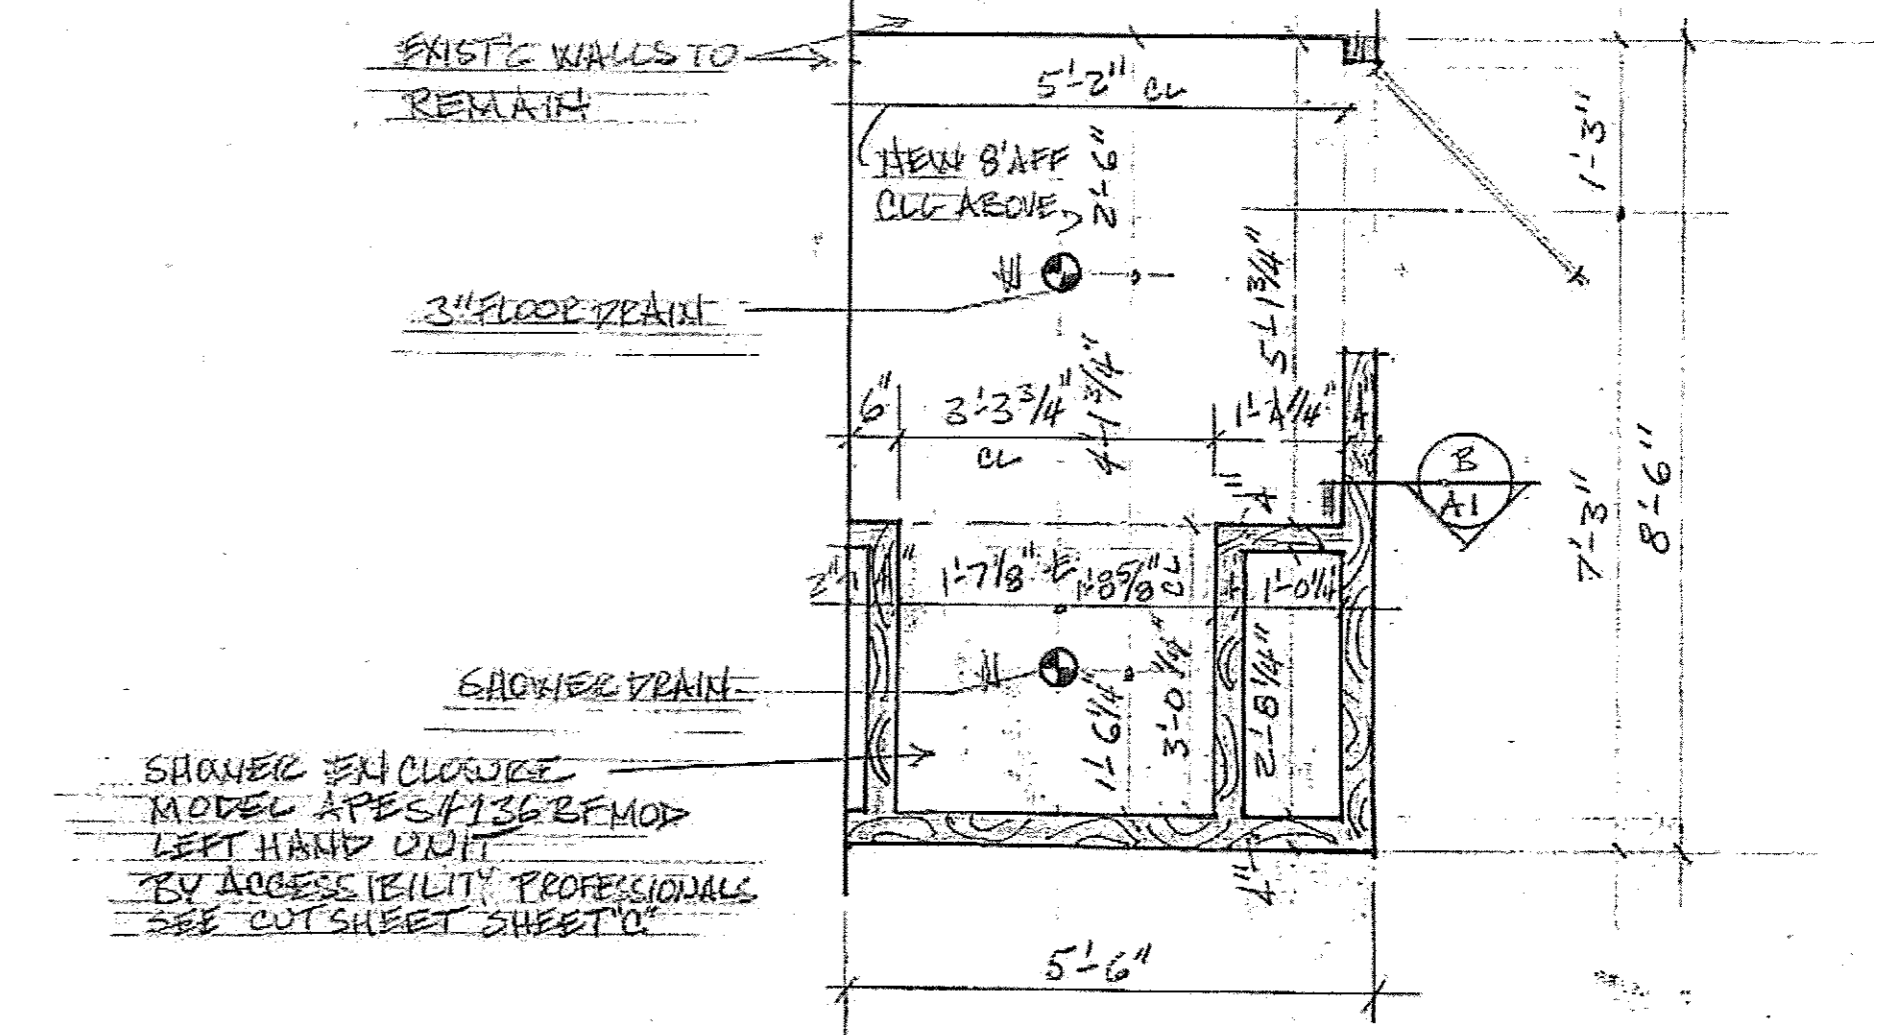 EXIST'G WALLS TO
REMAIN
5'-2" CL
NEW 8' AFF
CLG ABOVE
2'-6"
1'-3"
3" FLOOR DRAIN
5'-1 3/4"
4'-1 3/4"
6"
3'-3 3/4"
CL
1'-4 1/4"
4"
B
A1
7'-3"
8'-6"
4"
2"
4"
1'-7 1/8"
1'-8 5/8"
CL
4"
1'-0 1/4"
SHOWER DRAIN
1'-6 1/4"
3'-0 1/4"
2'-8 1/4"
SHOWER ENCLOSURE
MODEL APES#136 BFMOD
LEFT HAND UNIT
BY ACCESSIBILITY PROFESSIONALS
SEE CUTSHEET SHEET "C"
4"
5'-6"